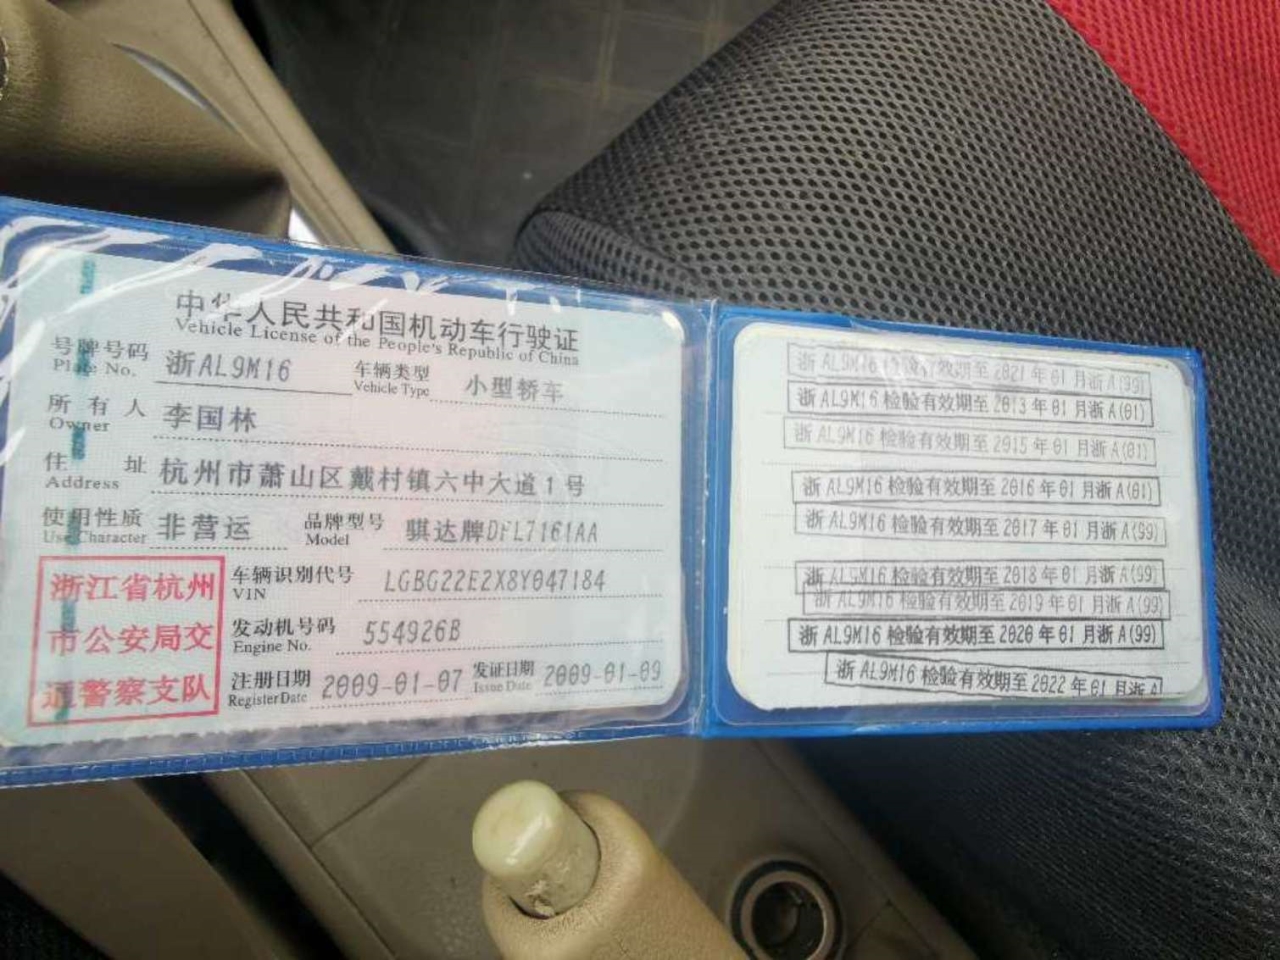 中华人民共和国机动车行驶证
Vehicle License of the People's Republic of China
号牌号码 浙AL9M16 车辆类型 小型轿车
Plate No. Vehicle Type
所有人 李国林
Owner
住址 杭州市萧山区戴村镇六中大道1号
Address
使用性质 非营运 品牌型号 骐达牌DFL7161AA
Use Character Model
浙江省杭州
市公安局交
通警察支队
车辆识别代号 LGBG22E2X8Y047184
VIN
发动机号码 554926B
Engine No.
注册日期 2009-01-07 发证日期 2009-01-09
Register Date Issue Date
浙AL9M16检验有效期至2021年01月浙A(99)
浙AL9M16检验有效期至2013年01月浙A(01)
浙AL9M16检验有效期至2015年01月浙A(01)
浙AL9M16检验有效期至2016年01月浙A(01)
浙AL9M16检验有效期至2017年01月浙A(99)
浙AL9M16检验有效期至2018年01月浙A(99)
浙AL9M16检验有效期至2019年01月浙A(99)
浙AL9M16检验有效期至2020年01月浙A(99)
浙AL9M16检验有效期至2022年01月浙A